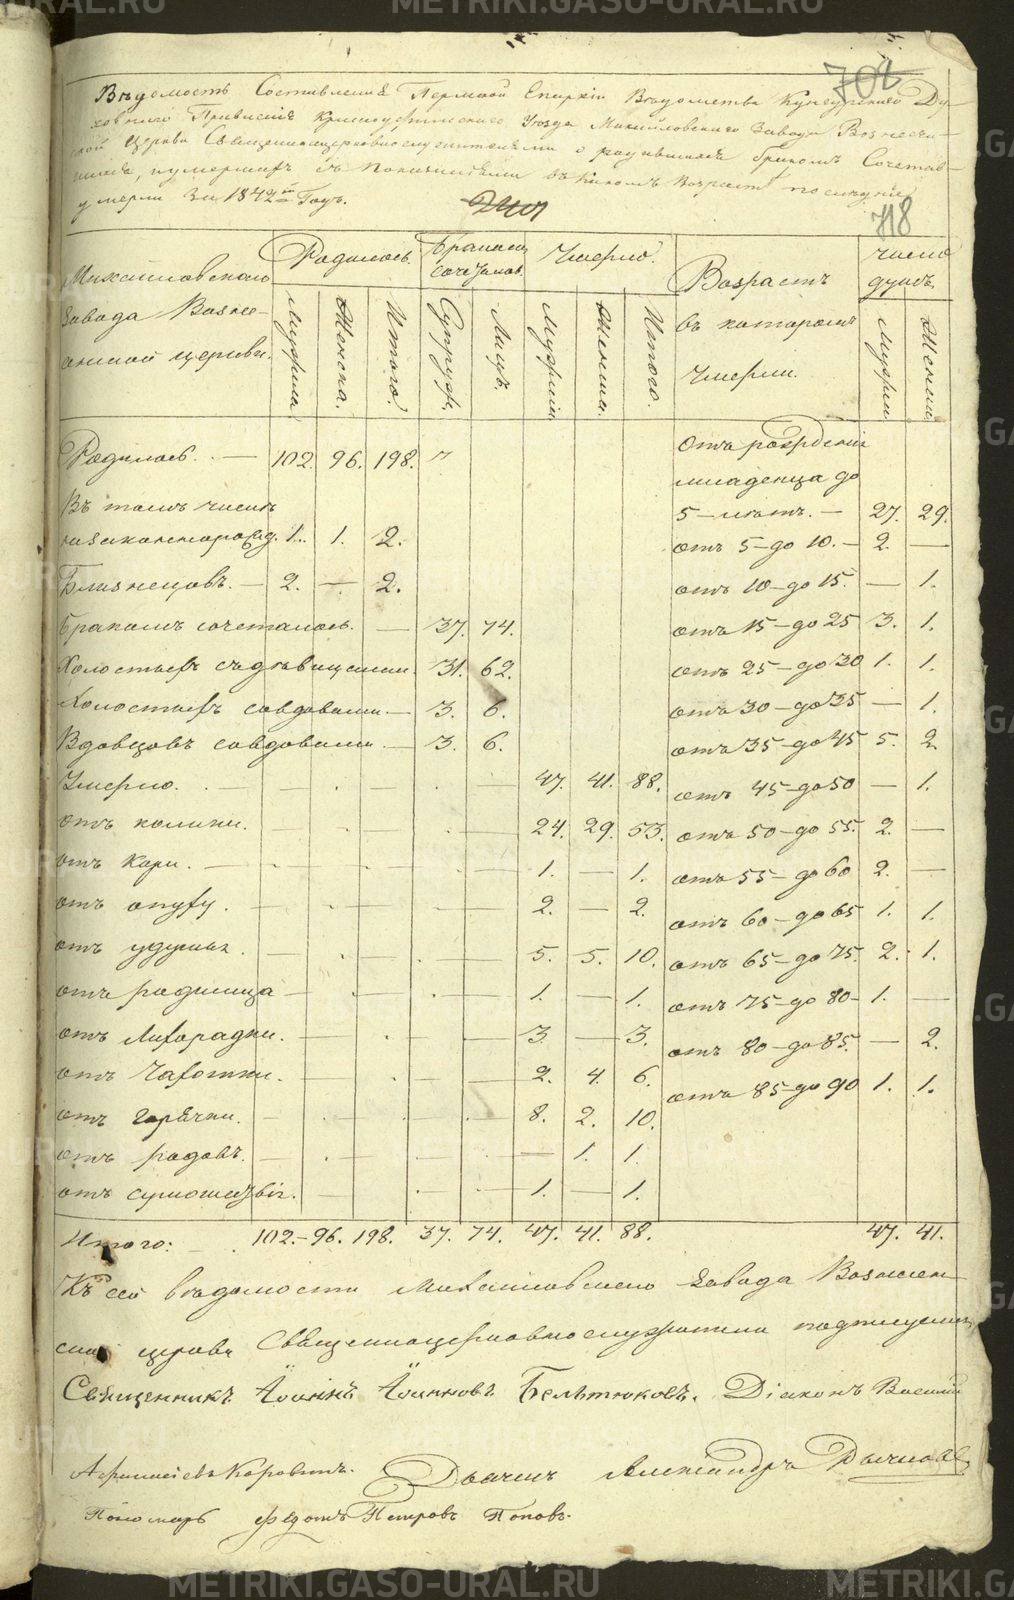 702
Вѣдомость Составленна Пермской Епархіи Вѣдомства Кунгурскаго Ду-
ховнаго Правленія Красноуфимскаго Уѣзда Михайловскаго Завода Вознесен-
ской Церкви Священноцерковнослужителями о родившихся бракомъ Сочетав-
шихся, и умершихъ съ показаніемъ въ какомъ возрастѣ послѣдніе
умерли За 1842й Годъ.
718
Михайловскаго завода Вознесенской церкви.
Родилось. Бракомъ Сочеталось. Умерло. Возрастъ въ которомъ Умерли. число душъ.
Мужска Женска. Итого. Супруж. Лицъ. Мужскіи Женски. Итого. Мужски Женски
Родилось. — 102. 96. 198. отъ рожденія младенца до 5 — лѣтъ. — 27. 29.
Въ томъ числѣ незаконнорожд. 1. 1. 2. отъ 5 — до 10. — 2. —
Близнецовъ. — 2. — 2. отъ 10 — до 15. — 1.
Бракомъ сочеталось. — 37. 74. отъ 15 — до 25 3. 1.
Холостыхъ съ дѣвицами 31. 62. отъ 25 — до 30 1. 1.
Холостыхъ совдовами — 3. 6. отъ 30 — до 35 — 1.
Вдовцовъ совдовами — 3. 6. отъ 35 — до 45 5. 2
Умерло. — 47. 41. 88. отъ 45 — до 50 — 1.
отъ 24. 29. 53. отъ 50 — до 55. 2. —
отъ кори. — 1. — 1. отъ 55 — до 60 2. —
отъ опуху. — 2. — 2. отъ 60 — до 65 1. 1.
отъ удушья. — 5. 5. 10. отъ 65 — до 75. 2. 1.
отъ родимца — 1. — 1. отъ 75 — до 80 — 1. —
отъ Лихорадки. — 3. — 3. отъ 80 — до 85. — 2.
отъ Чахотки. — 2. 4. 6. отъ 85 — до 90 1. 1.
отъ горячки. — 8. 2. 10.
отъ родовъ. — 1. 1.
отъ сумошествія. — 1. — 1.
Итого: 102. — 96. 198. 37. 74. 47. 41. 88. 47. 41.
Къ сей вѣдомости Михайловскаго Завода Вознесен-
ской церкви Священноцерковнослужители подписуемся
Священникъ Іоаннъ Іоанновъ Бельтюковъ. Діаконъ Василій
Афанасіевъ Коровинъ. Дьячекъ Александръ
Пономарь Федотъ Петровъ Поповъ.
METRIKI.GASO-URAL.RU